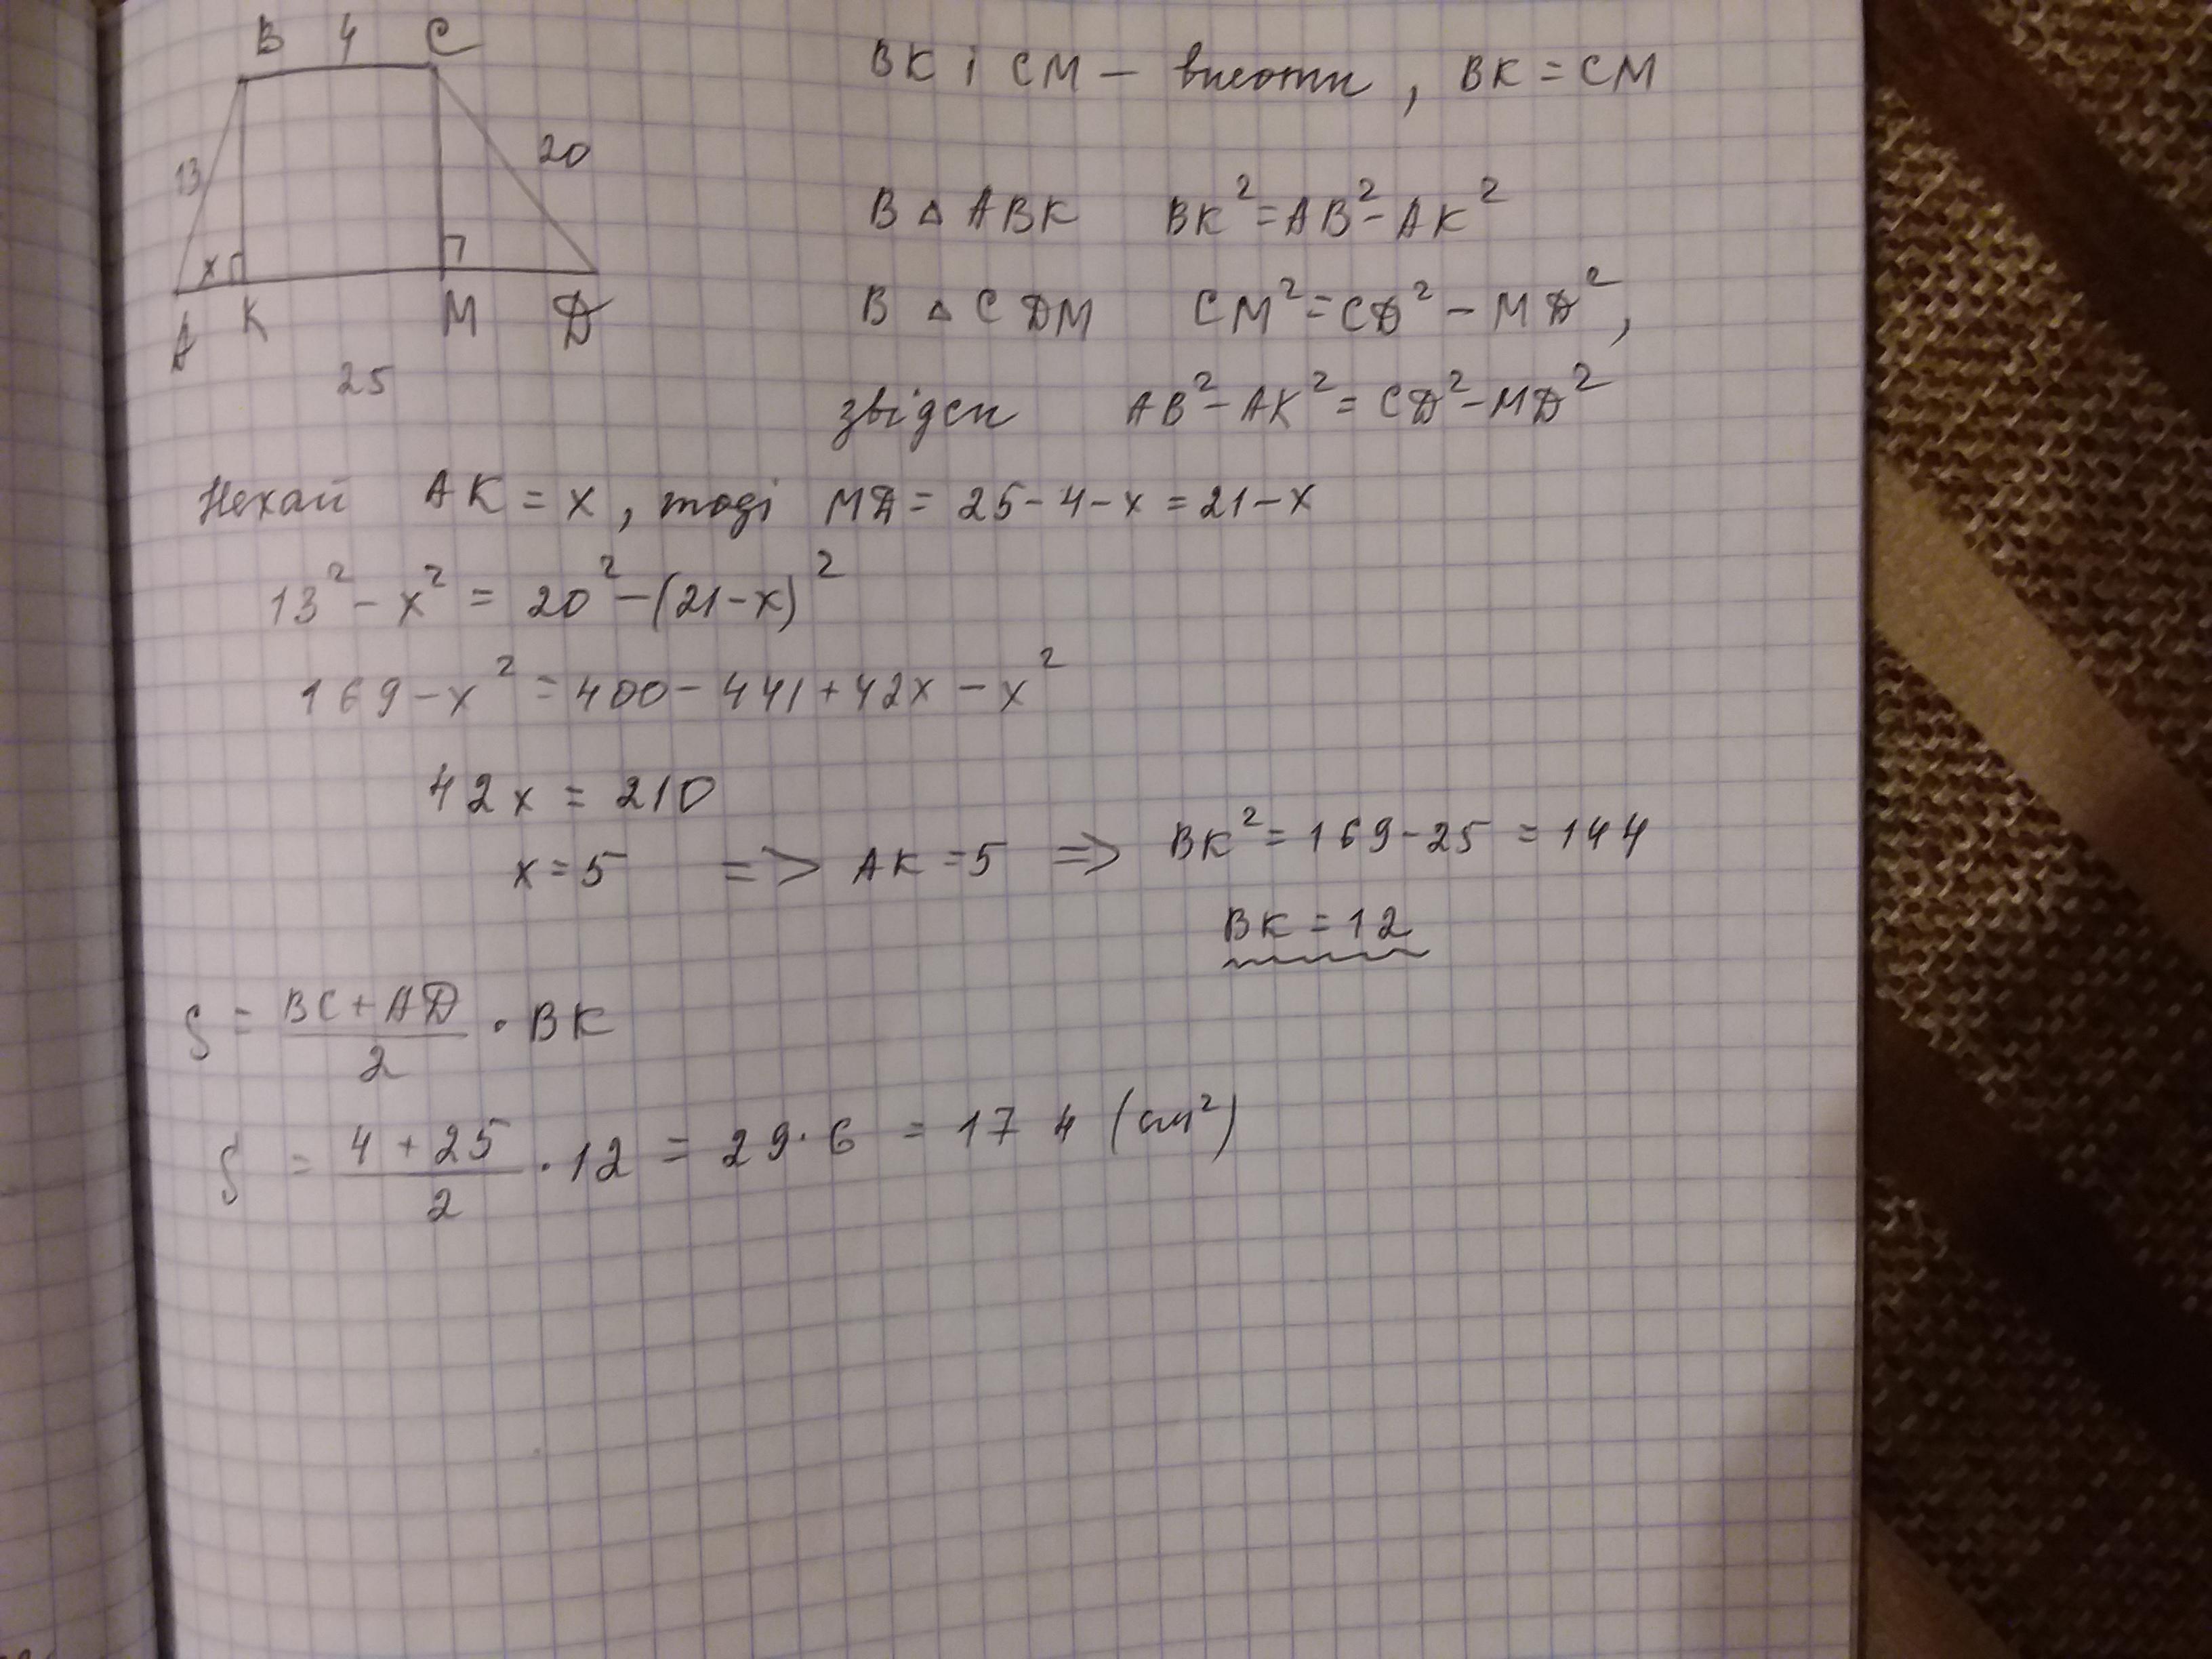 B 4 C
13
20
x
A K M D
25
BK і CM – висоти, BK = CM
В △ ABK BK² = AB² - AK²
В △ CDM CM² = CD² - MD²,
звідси AB² - AK² = CD² - MD²
Нехай AK = x, тоді MD = 25 - 4 - x = 21 - x
13² - x² = 20² - (21 - x)²
169 - x² = 400 - 441 + 42x - x²
42x = 210
x = 5 => AK = 5 => BK² = 169 - 25 = 144
BK = 12
S = (BC + AD)/2 · BK
S = (4 + 25)/2 · 12 = 29 · 6 = 174 (см²)